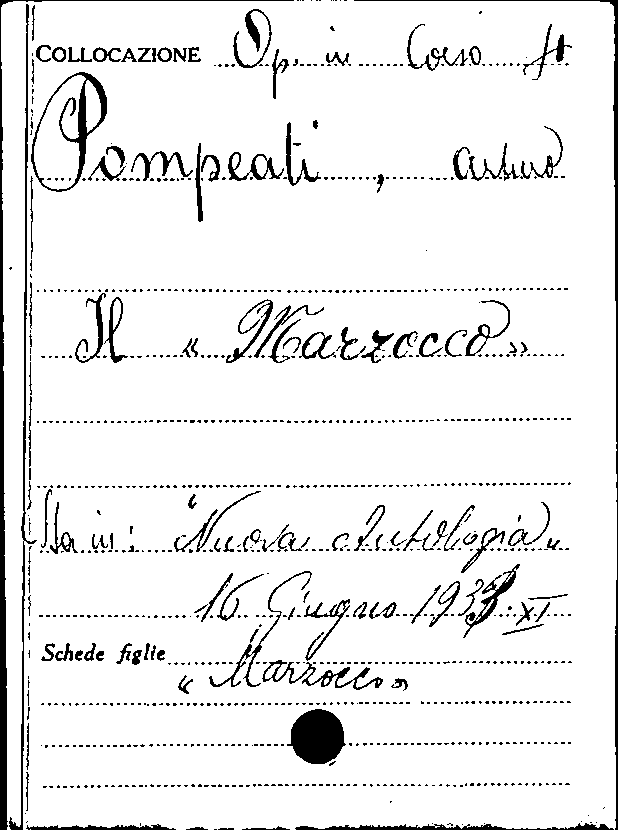 COLLOCAZIONE Op. in Corso
Pompeati, Arturo
Il « Marzocco »
Sta in: "Nuova Antologia„
16 Giugno 1933·XI
Schede figlie
« Marzocco »